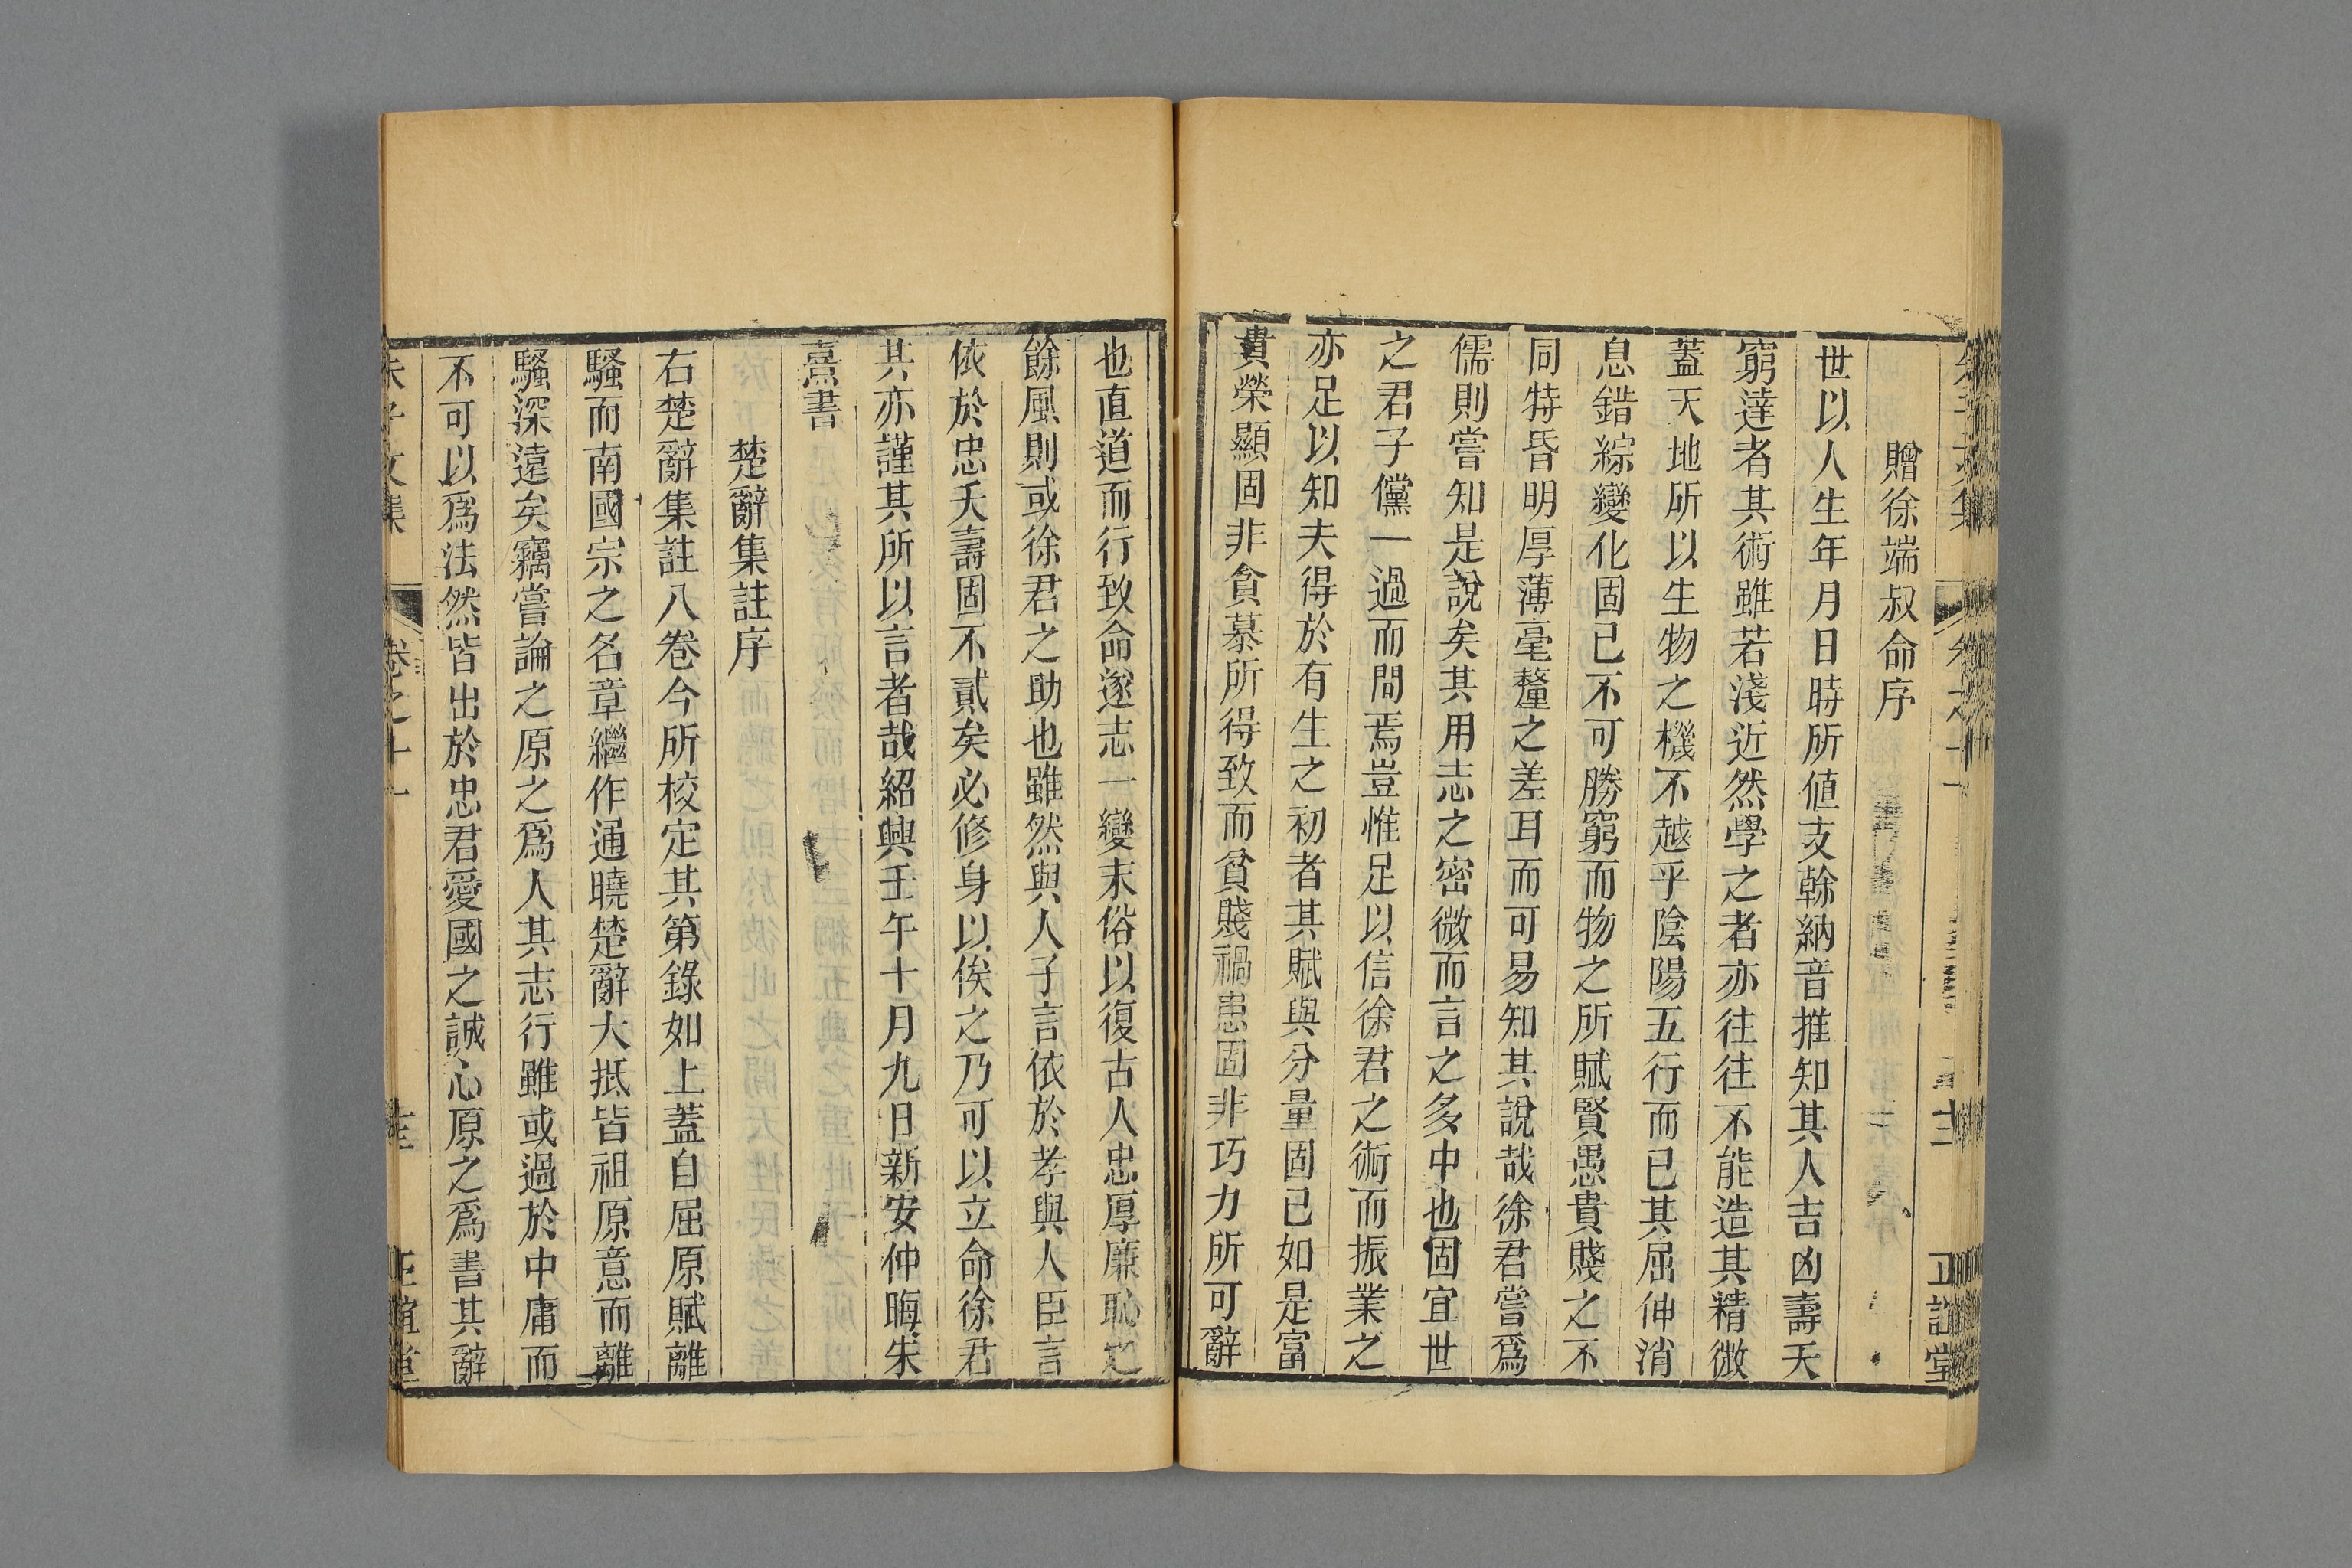 贈徐端叔命序
世以人生年月日時所值支榦納音推知其人吉凶壽夭
窮達者其術雖若淺近然學之者亦往往不能造其精微
蓋天地所以生物之機不越乎陰陽五行而已其屈伸消
息錯綜變化固已不可勝窮而物之所賦賢愚貴賤之不
同特昏明厚薄毫釐之差耳而可易知其說哉徐君嘗爲
儒則嘗知是說矣其用志之密微而言之多中也固宜世
之君子儻一過而問焉豈惟足以信徐君之術而振業之
亦足以知夫得於有生之初者其賦與分量固已如是富
貴榮顯固非貪慕所得致而貧賤禍患固非巧力所可辭
也直道而行致命遂志一變末俗以復古人忠厚廉恥之
餘風則或徐君之助也雖然與人子言依於孝與人臣言
依於忠夭壽固不貳矣必修身以俟之乃可以立命徐君
其亦謹其所以言者哉紹興壬午十月九日新安仲晦朱
熹書
楚辭集註序
右楚辭集註八卷今所校定其第錄如上蓋自屈原賦離
騷而南國宗之名章繼作通曉楚辭大抵皆祖原意而離
騷深遠矣竊嘗論之原之爲人其志行雖或過於中庸而
不可以爲法然皆出於忠君愛國之誠心原之爲書其辭
朱子文集
卷之十一
正誼堂